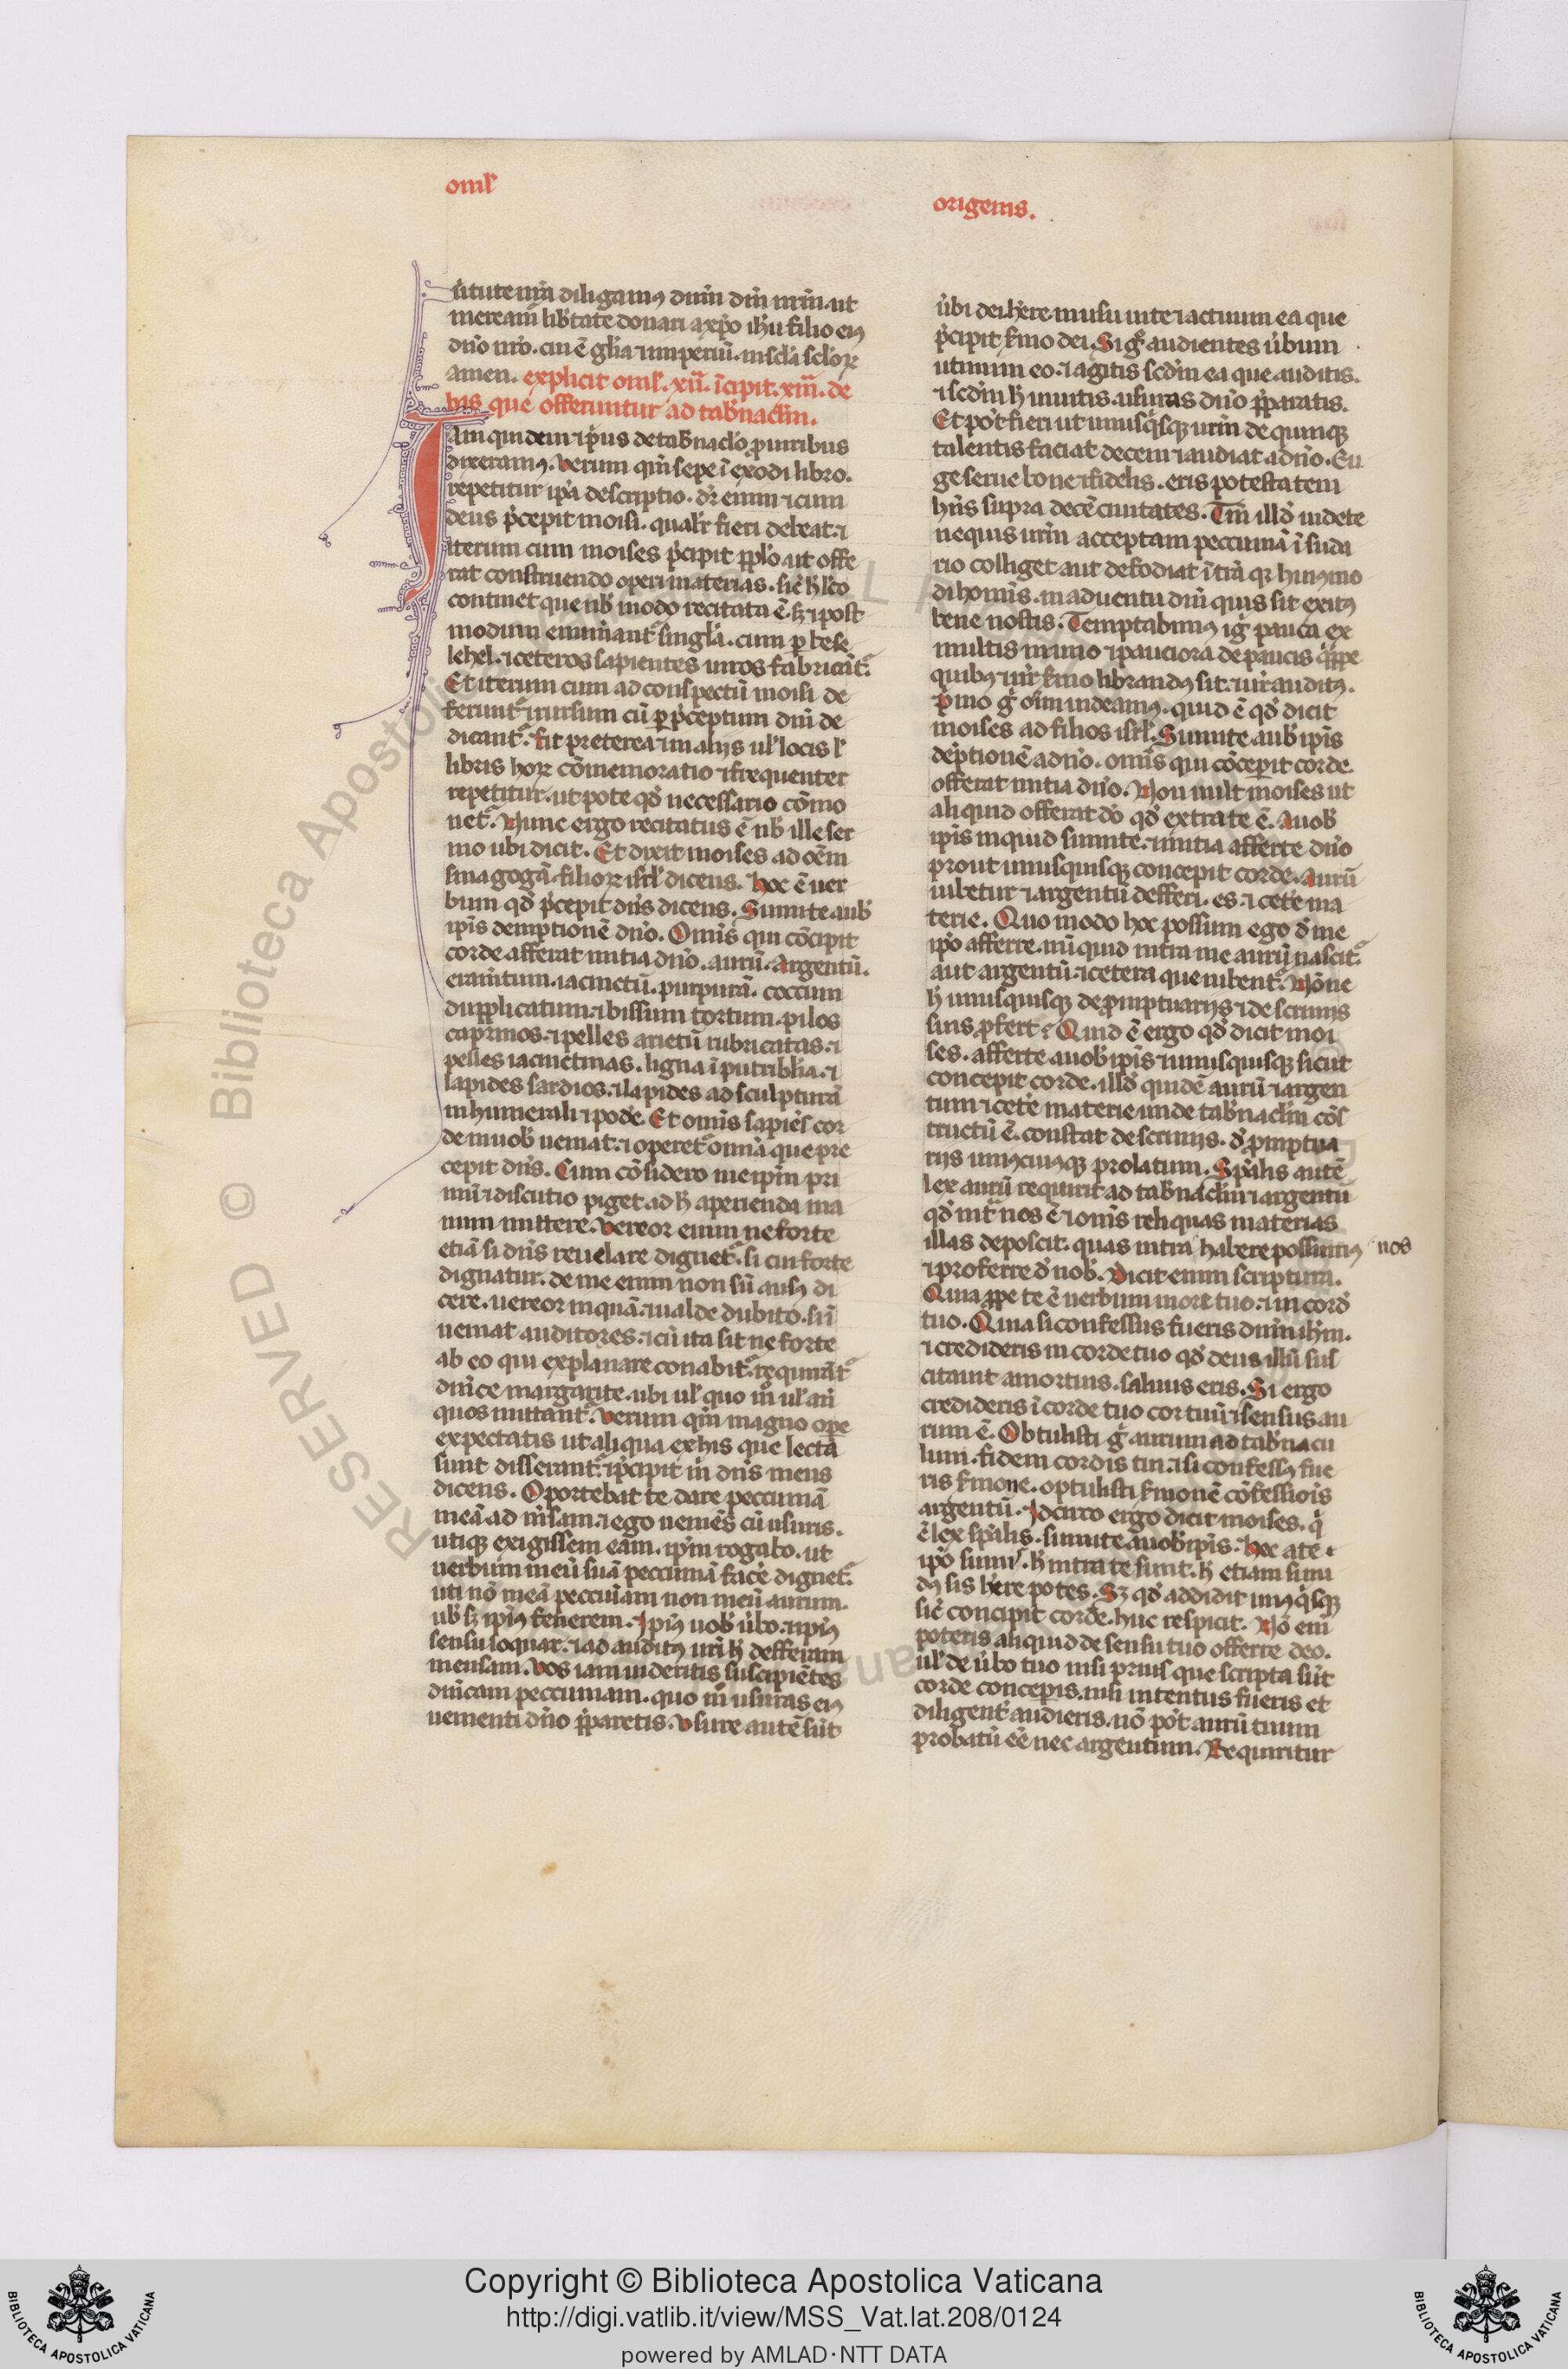 omƚ
origenis.
ututē nr̄a diligamꝰ dn̄m dm̄ nr̄m. ut
mereamʳ libtate donari a xp̄o ih̄u filio eiꝰ
dn̄o nr̄o. cui ē gl̄ia ⁊ imperiū. in scl̄a scl̄oꝝ
amen. explicit omƚ. xii. īcipit. xiii. de
his que offeruntur ad tab̄naclm̄.
Iam quidem ⁊ p̄us de tab̄naclo ꝓ uiribus
dixeramꝰ. Verum qm̄ sepe ī exodi libro.
repetitur ip̄a descriptio. dr̄ enim ⁊ cum
deus p̄cepit moisi. qualr̄ fieri debeat. ⁊
iterum cum moises p̄cipit pplo. ut offe
rat construendo operi materias. sic̄ h̄ lc̄o
continet que nb̄ modo recitata ē. sꝫ ⁊ post
modum eminant̄ singl̄a. cum ꝑ bese
lehel. ⁊ ceteros sapientes uiros fabricāt̄.
Et iterum cum ad conspectū moisi de
ferunt̄. ⁊ rursum cū ꝑ p̄ceptum dn̄i de
dicant̄. Fit preterea ⁊ in alijs ul̄ locis ł
libris hoꝝ cōmemoratio ⁊ frequenter
repetitur. ut pote qd̄ necessario cōmo
net̄. Nunc ergo recitatus ē nb̄ ille ser
mo ubi dicit. Et dixit moises ad oēm
sinagogā filioꝝ isrl̄ dicens. Hoc ē uer
bum qd̄ p̄cepit dn̄s dicens. Sumite a uob̄
ip̄is demptionē dn̄o. Omīs qui cōcipit
corde afferat initia dn̄o. aurū. Argentū.
eramītum. iacinctū. purpurā. coccum
dupplicatum. ⁊ bissum tortum. pilos
caprinos. ⁊ pelles arietū rubricatas. ⁊
pelles iacinctinas. ligna īputriblia. ⁊
lapides sardios. ⁊ lapides ad sculpturā
in humerali ⁊ pode. Et omīs sapiēs cor
de in uob̄ ueniat. ⁊ operet̄ omīa que pre
cepit dn̄s. Cum cōsidero me ip̄m pri
mū ⁊ discutio piget ad h̄ aperienda ma
num mittere. Vereor enim ne forte
etiā si dn̄s reuelare dignet̄. si cui forte
dignatur. de me enim non sū ausꝰ di
cere. uereor inquā. ⁊ ualde dubito. sīn
ueniat auditores. ⁊ cū ita sit ne forte
ab eo qui explanare conabit̄. requirāt̄
dn̄ice margarite. ubi ul̄ quo m̊ ul̄ an̄
quos mittant̄. Verum qm̄ magno ope
expectatis ut aliqua ex his que lecta
sunt disserant̄. ⁊ p̄cipit m̄ dn̄s meus
dicens. Oportebat te dare peccuniā
meā ad m̄sam. ⁊ ego ueniēs cū usuris.
utiqꝫ exigissem eam. ip̄m rogabo. ut
uerbum meū suā peccuniā facē dignet̄.
uti nō meā peccuiam non meū aurum.
ub̄ sꝫ ip̄ius fenerem. Ipiꝰ uob̄ ūbo. ⁊ ipiꝰ
sensu loquar. ⁊ ad auditꝰ ur̄i h̄ defferam
mensam. Vos iam uideritis suscipiētes
dn̄icam peccuniam. quo m̊ usuras eiꝰ
uenienti dn̄o p̄paretis. Vsure autē sūt
ūbi dei. h̄ere in usu uite ⁊ actuum ea que
p̄cipit ẜmo dei. Si gͦ audientes ūbum
utimini eo. ⁊ agitis scd̄m ea que auditis.
⁊ scd̄m h̄ uiuitis. usuras dn̄o p̄paratis.
Et pōt fieri ut unusq̄sqꝫ ur̄m de quinqꝫ
talentis faciat decem ⁊ audiat a dn̄o. Eu
ge serue bone ⁊ fidelis. eris potestatem
hn̄s supra decē ciuitates. Tm̄ illd̄ uidete
ne quis ur̄m acceptam peccuniā ī suda
rio colliget aut defodiat ī trā. qꝛ hui9mo
di homīs. in aduentu dn̄i quis sit exitꝰ
bene nostis. Temptabimꝰ igͥ pauca ex
multis. immo ⁊ pauciora de paucis q̄ppe
quibꝰ ⁊ nr̄ ẜmo librandꝰ sit. ⁊ ur̄ auditꝰ.
p̄mo gͦ oīm uideamꝰ. quid ē qd̄ dicit
moises ad filios isrl̄. Sumite a uob̄ ip̄is
dēptionē a dn̄o. omīs qui cōceꝑit corde.
offerat initia dn̄o. Non uult moises ut
aliquid offerat dō qd̄ extra te ē. A uob̄
ip̄is inquid sumite. ⁊ initia afferte dn̄o
prout unusquisqꝫ concepit corde. Aurū
iubetur ⁊ argentū defferi. es. ⁊ cetēe ma
terie. Quo modo hoc possum ego d̄ me
ip̄o afferre. nū quid intra me aurū nascit̄.
aut argentū. ⁊ cetera que iubent̄. Nōne
h̄ unusquisqꝫ de ꝓmptuarijs ⁊ de scrinijs
suis ꝓfert? Quid ē ergo qd̄ dicit moi
ses. afferte a uob̄ ip̄is ⁊ unusquisqꝫ sicut
concepit corde. illd̄ quidē aurū ⁊ argen
tum ⁊ cetē materie unde tab̄naclm̄ cōs
tructū ē. constat de scrinijs. d̄ ꝓmptua
rijs uniꝰcuiusqꝫ prolatum. Sp̄alis autē
lex aurū requirit ad tab̄naclm̄ ⁊ argentū
qd̄ int̄ nos ē ⁊ omīs reliquas materias
illas deposcit. quas intra habere possumꝰ nos
⁊ proferre d̄ nob̄. Dicit enim scriptura.
Quia ꝓpe te ē uerbum in ore tuo. ⁊ in cord̄
tuo. Quia si confessus fueris dn̄m ih̄m.
⁊ credideris in corde tuo qd̄ deus illū sus
citauit a mortuis. saluus eris. Si ergo
credideris ī corde tuo cor tuū ⁊ sensus au
rum ē. Obtulisti gͦ aurum ad tab̄nacu
lum. fidem cordis tui. ⁊ si confessꝰ fue
ris ẜmone. optulisti ẜmonē cōfessiois
argentū. Idcirco ergo dicit moises. q̄
ē lex sp̄alis. sumite a uob̄ ip̄is. Hoc a te
ip̄o sumis. h̄ intra te sunt. h̄ etiam si nu
dꝰ sis h̄ere potes. Sꝫ qd̄ addidit unꝰq̄sqꝫ
sic̄ concipit corde. huc respicit. Nō eni
poteris aliquid de sensu tuo offerre deo.
ul̄ de ūbo tuo nisi prius que scripta sūt
corde concepis. nisi intentus fueris et
diligent̄ audieris. nō pōt aurū tuum
probatū eē nec argentum. Requiritur
RESERVED © Biblioteca Apostolica Vaticana
BIBLIOTECA APOSTOLICA VATICANA
Copyright © Biblioteca Apostolica Vaticana
http://digi.vatlib.it/view/MSS_Vat.lat.208/0124
powered by AMLAD·NTT DATA
BIBLIOTECA APOSTOLICA VATICANA